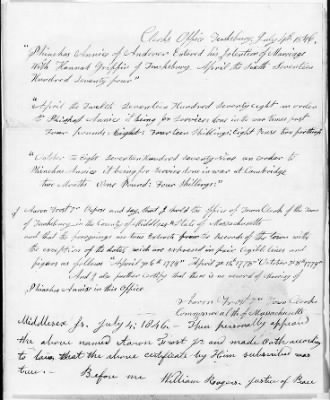 Clerks Office Tewksbury, July 4th 1846.
"Phinehas Annies of Andover Entered his Intention of Marriage
With Hannah Griffin of Tewksbury. April the Sixth Seventeen
Hundred Seventy four"
"April the Twelth Seventeen Hundred Seventy eight an order
to Phinehas Annies it being for services done in the war times past
Four Pounds Eight: Fourteen Shillings: Eight Pence two farthings"
"October the Eight Seventeen Hundred Seventy Nine an order to
Phinehas Annies it being for Service done in war at Cambridge
two Months One Pound: Four Shillings:"
I Aaron Frost Jr Depose and say, that I hold the office of Town Clerk of the Town
of Tewksbury in the County of Middlesex & State of Massachusetts
and that the foregoing are true Extracts from the Records of the Town with
the exception of the dates, which are expressed in fair legible lines and
figures as follows "April ye 6th 1774" "April ye 12th 1778" October ye 8th 1779"
And I do further certify that there is no record of Marriage of
Phinehas Annies in this Office
Aaron Frost Jr Town Clerk
Commonwealth of Massachusetts
Middlesex Ss. July 4; 1846.- Then personally appeared
the above named Aaron Frost Jr and made Oath according
to law, that the above certificate by Him subscribed was
true.- Before me William Rogers Justice of Peace